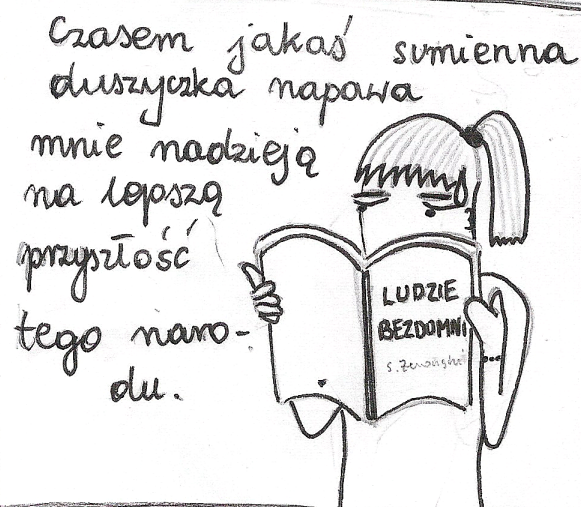 Czasem jakaś sumienna
duszyczka napawa
mnie nadzieją
na lepszą
przyszłość
tego naro-
du.
LUDZIE
BEZDOMNI
S. Żeromski